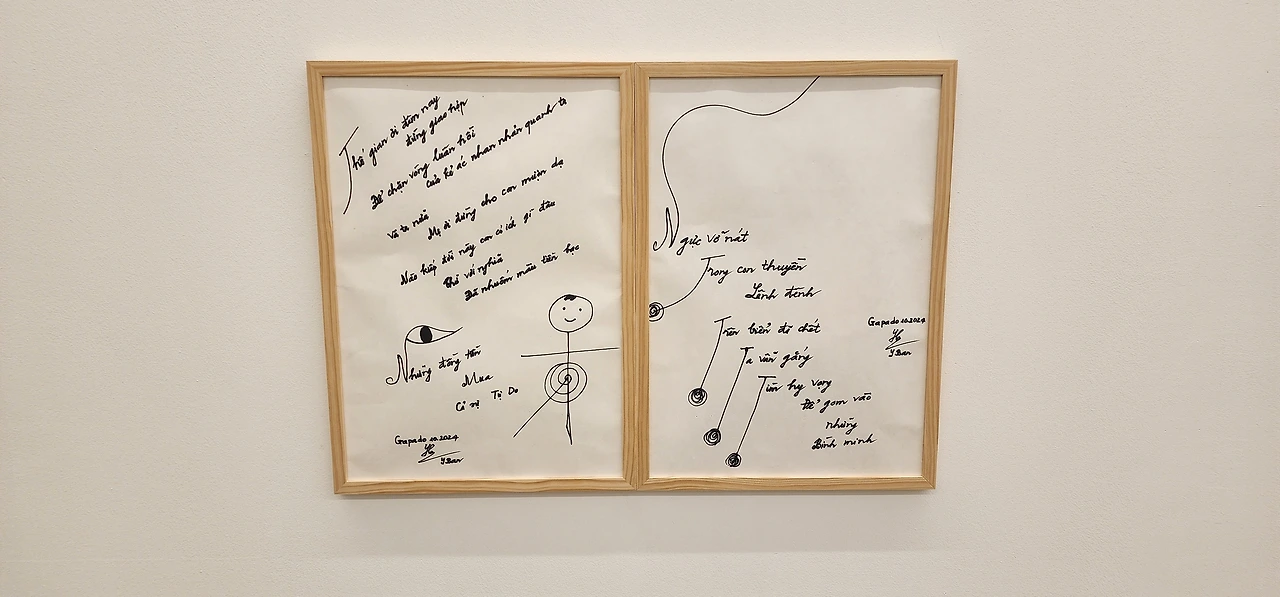 Thế gian ơi đêm nay
đừng giao hợp
Để chặn vòng luân hồi
của kẻ ác nhan nhản quanh ta
và ta nữa
Mẹ ơi đừng cho con mượn dạ
Nào kiếp đời này con có ích gì đâu
Thơ với nghĩa
Đã nhuốm màu tiền học
Những đồng tiền
Mua
Cả sự Tự Do
Gapado 10.2024
Y Ban
Ngực vỡ nát
Trong con thuyền
Lênh đênh
Trên biển đã chết
Ta vẫn gắng
Tìm hy vọng
Để gom vào
những
Bình minh
Gapado 10.2024
Y Ban